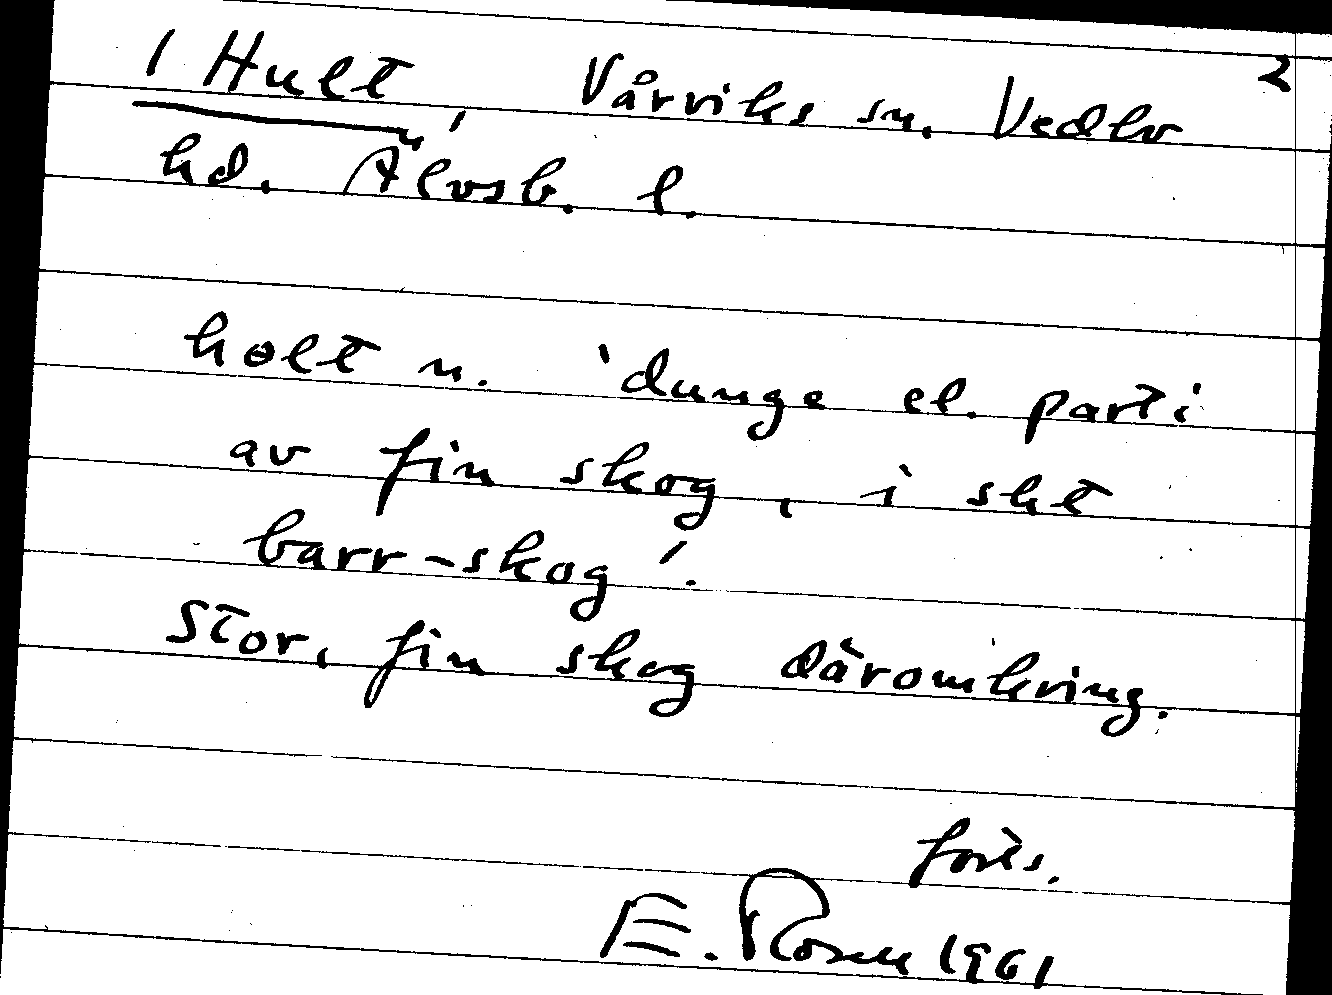 1 Hult, Vårviks sn. Vedbo 2
hd. Älvsb. l.
holt n. 'dunge el. parti
av fin skog, i sht
barr-skog'.
Stor, fin skog däromkring.
forts.
E. Rosell 1961